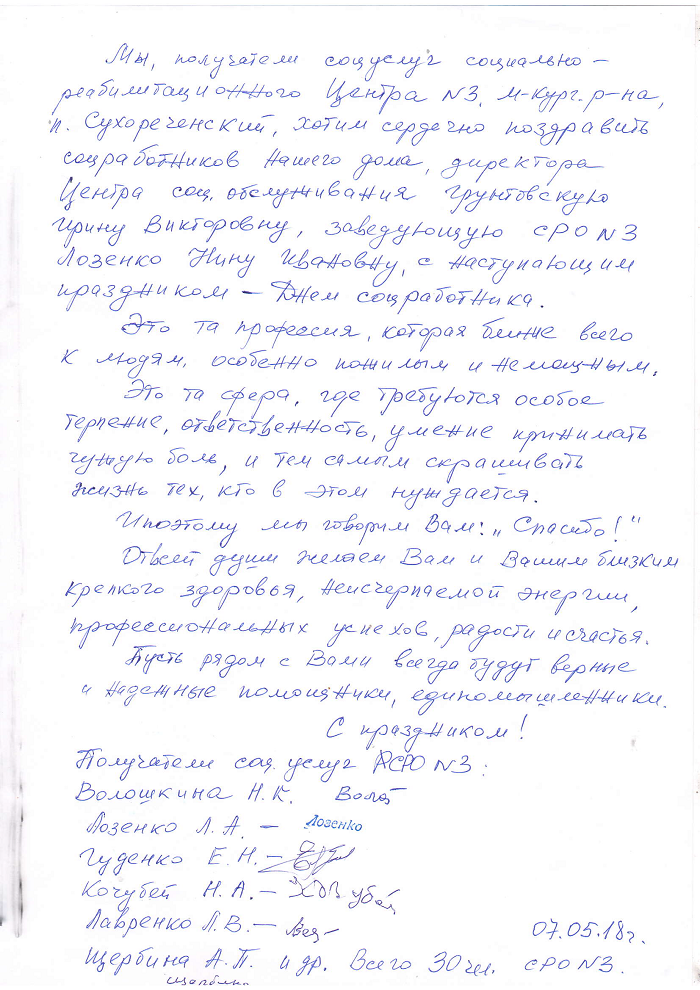 Мы, получатели соцуслуг социально-
реабилитационного Центра N3, М-Кург. р-на,
п. Сухореченский, хотим сердечно поздравить
соцработников нашего дома, директора
Центра соц. обслуживания Грунтовскую
Ирину Викторовну, заведующую СРО N3
Лозенко Нину Ивановну, с наступающим
праздником – Днем соцработника.
Это та профессия, которая ближе всего
к людям, особенно пожилым и немощным.
Это та сфера, где требуются особое
терпение, ответственность, умение принимать
чужую боль, и тем самым скрашивать
жизнь тех, кто в этом нуждается.
И поэтому мы говорим Вам: „Спасибо!"
От всей души желаем Вам и Вашим близким
крепкого здоровья, неисчерпаемой энергии,
профессиональных успехов, радости и счастья.
Пусть рядом с Вами всегда будут верные
и надежные помощники, единомышленники.
С праздником!
Получатели соц. услуг СРО N3:
Волошкина Н.К.
Лозенко Л.А. – Лозенко
Гуденко Е.Н. –
Кочубей Н.А. –
Лавренко Л.В. –
07.05.18г.
Щербина А.П. и др. Всего 30 чел. СРО N3.